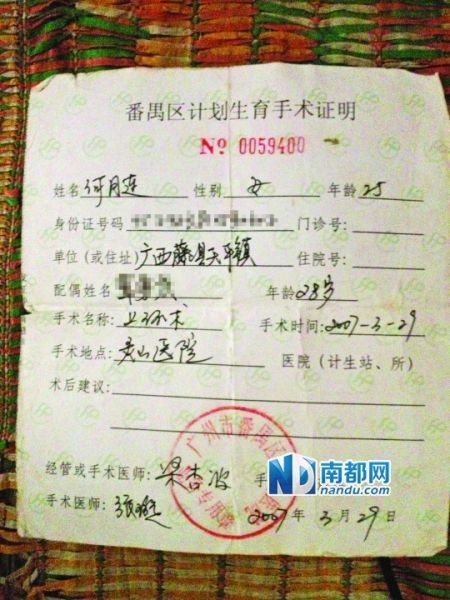 番禺区计划生育手术证明
№ 0059400
姓名 何月连 性别 女 年龄 25
身份证号码 门诊号:
单位(或住址) 广西藤县天平镇 住院号:
配偶姓名 年龄 28岁
手术名称: 上环术 手术时间: 2007-3-29
手术地点: 医院 医院(计生站、所)
术后建议:
广州市番禺区
专用章
经管或手术医师: 梁杏波 手
南都网
nandu.com
手术医师: 张
2007年3月29日